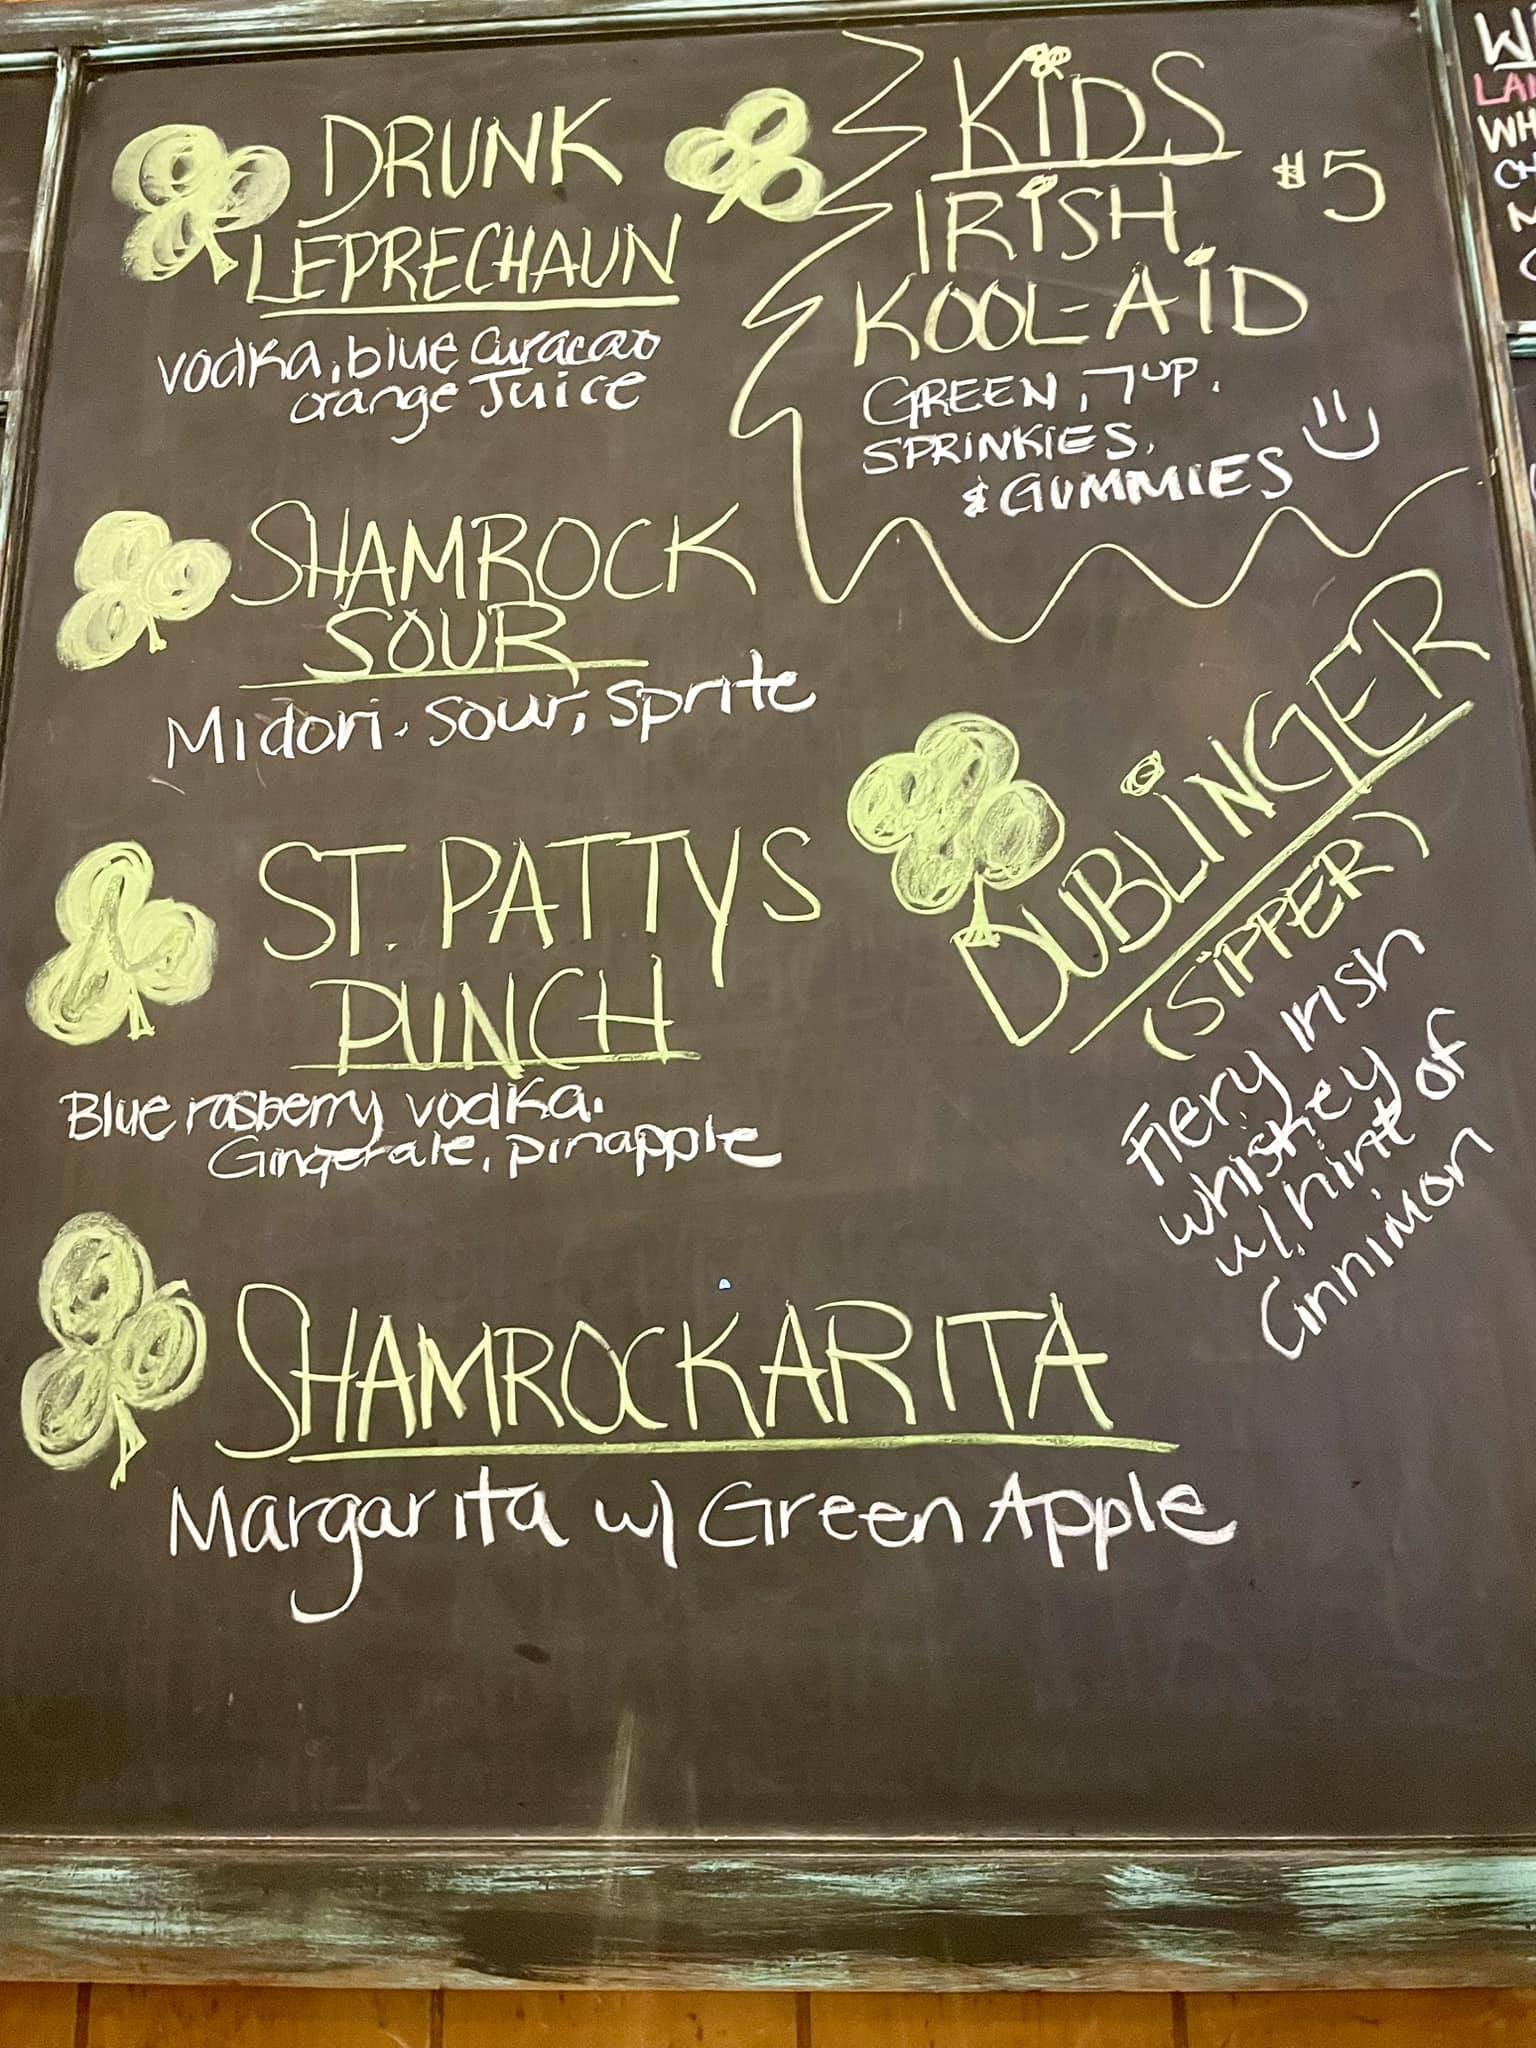 DRUNK
LEPRECHAUN
vodka, blue Curacao
orange Juice
SHAMROCK
SOUR
Midori. sour, sprite
ST. PATTYS
PUNCH
Blue rasberry vodka.
Gingerale, pinapple
SHAMROCKARITA
Margarita w/ Green Apple
KiDS
IRiSH
$5
KOOL-AiD
GREEN, 7UP.
SPRiNKlES.
& GUMMIES
DUBLiNGER
(SiPPER)
Fiery Irish
whiskey
w/. hint of
Cinnimon
LAN
WH